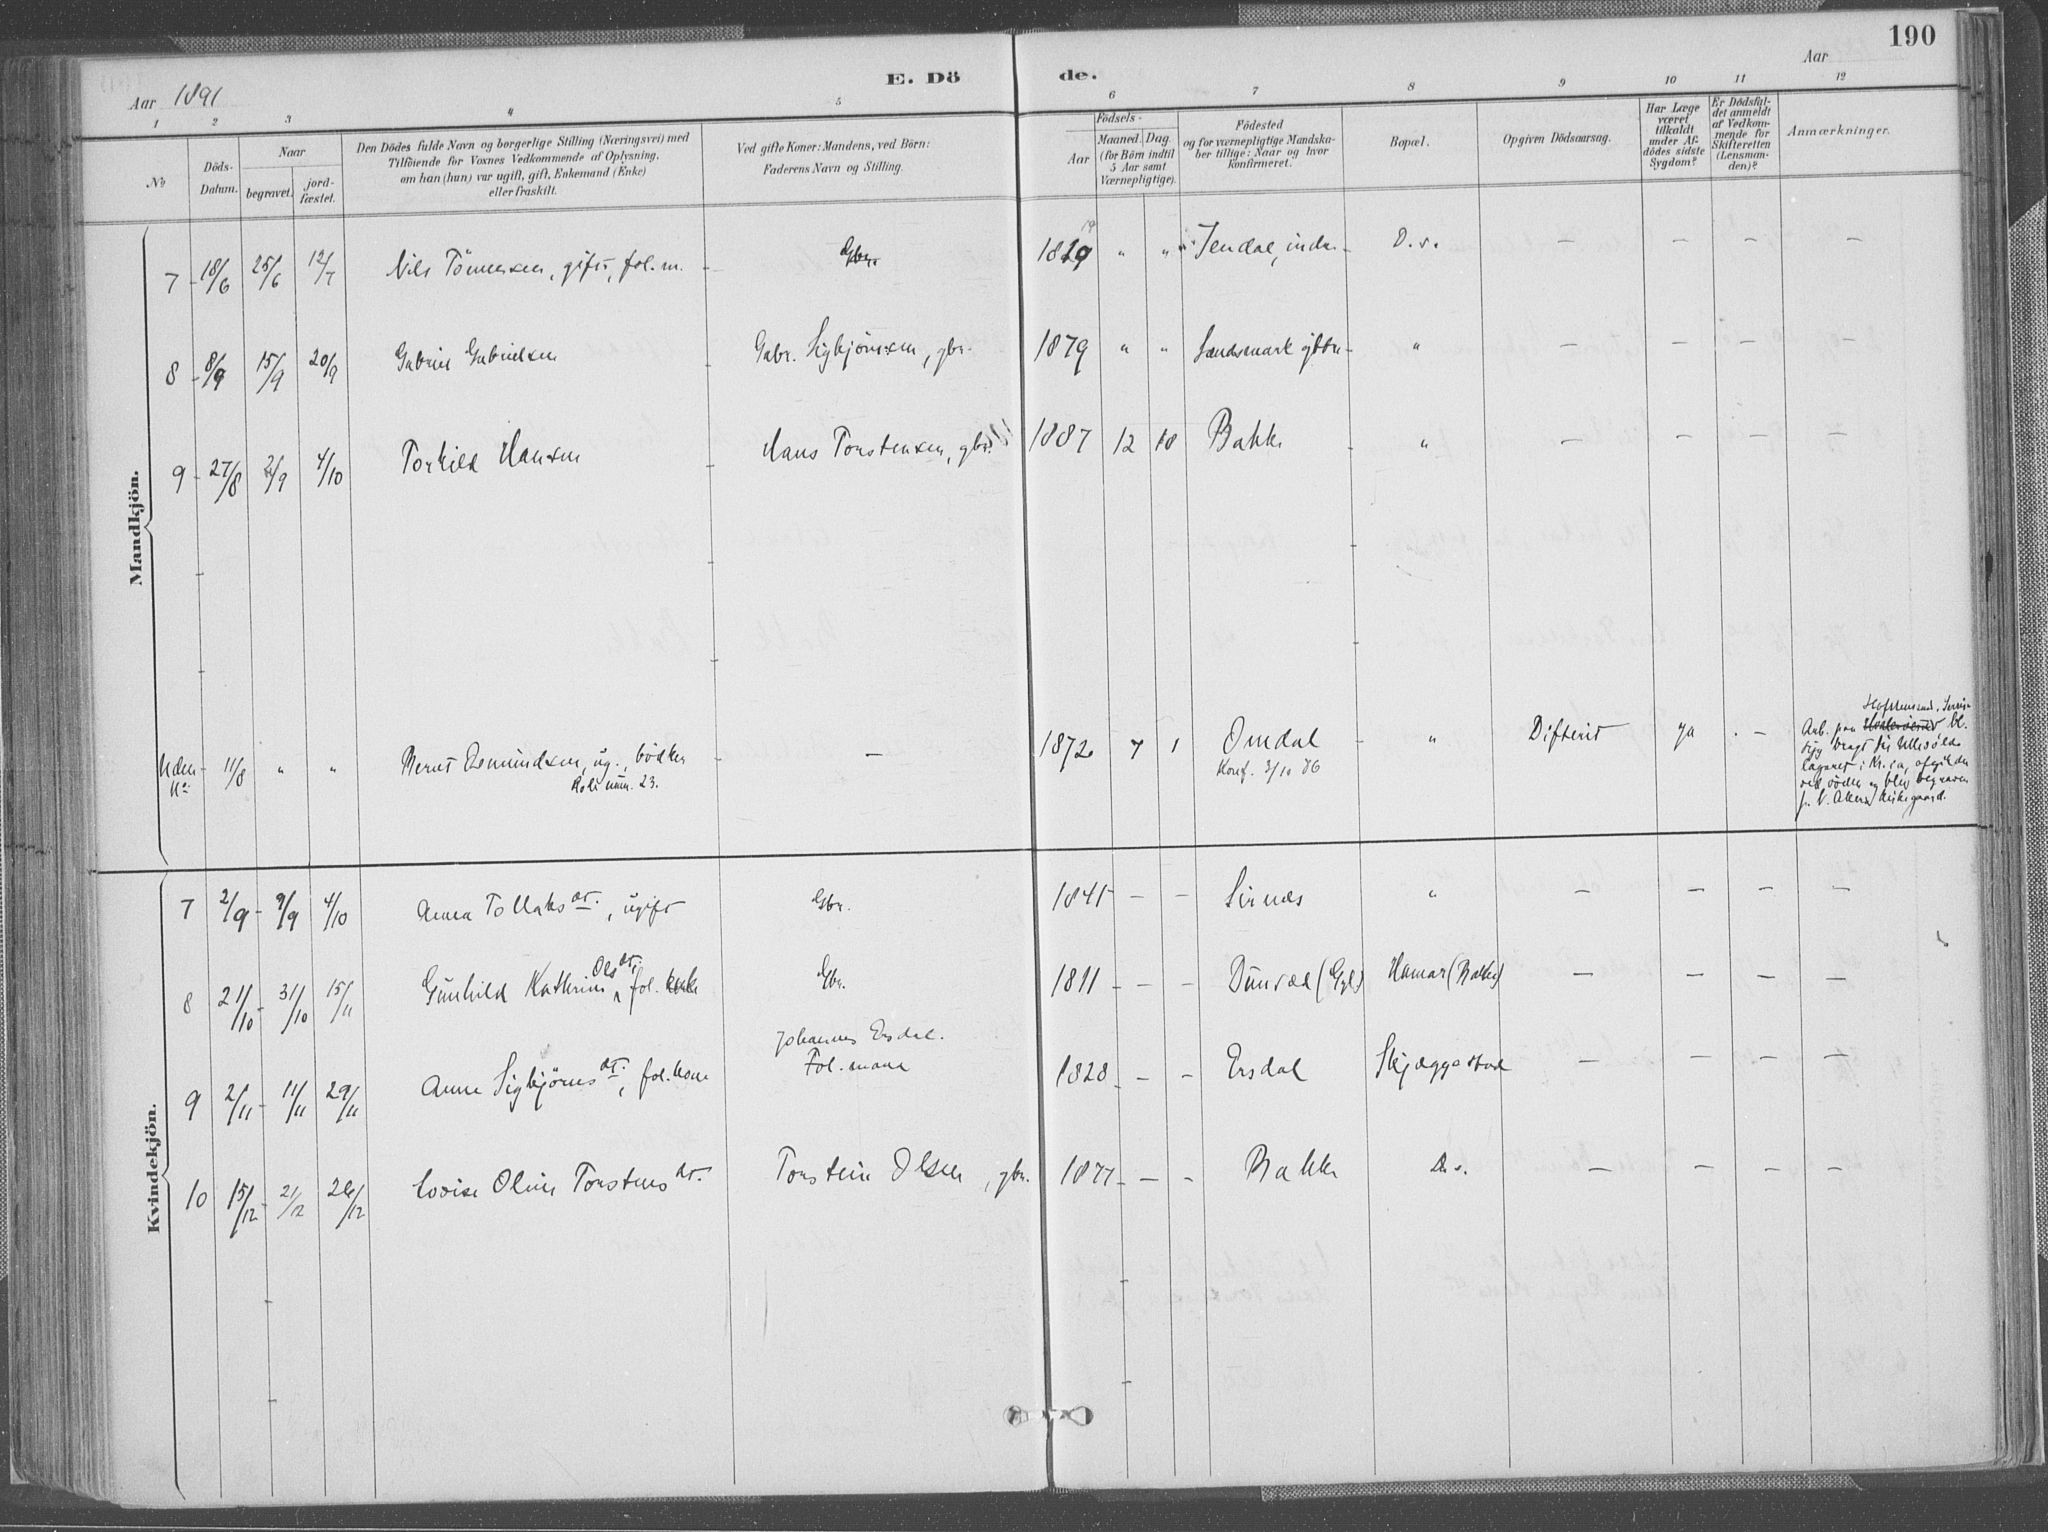 190
E. Dö de.
Aar 1891
Aar
1 2 3 4 5 6 7 8 9 10 11 12
No
Döds-Datum.
Naar
begravet.
jord-fæstet.
Den Dödes fulde Navn og borgerlige Stilling (Næringsvei) med
Tilföiende for Voxnes Vedkommende af Oplysning,
om han (hun) var ugift, gift, Enkemand (Enke)
eller fraskilt.
Ved gifte Koner: Mandens, ved Börn:
Faderens Navn og Stilling.
Födsels-
Aar
Maaned. Dag.
(for Börn indtil
5 Aar samt
Værnepligtige).
Födested
og for værnepligtige Mandska-
ber tillige: Naar og hvor
konfirmeret.
Bopæl.
Opgiven Dödsaarsag.
Har Læge
været
tilkaldt
under Af-
dödes sidste
Sygdom?
Er Dödsfal-
det anmeldt
af Vedkom-
mende for
Skifteretten
(Lensman-
den)?
Anmærkninger.
Mandkjön.
7 18/6 25/6 12/7 Nils Tönnessen, gift, fol.m. - Gbr. 1819 " " D.s. - - - -
8 8/9 15/9 20/9 Gabriel Gabrielsen Gabr. Sigbjörnsen, gbr. 1879 " " " - - - -
9 27/8 2/9 4/10 Torkild Hansen Hans Torstensen, gbr. 1887 12 18 Bakke " - - - -
Uden No 11/8 " " Bernt Osmundsen, ug., bödker - 1872 7 1 Omdal " Difterit ja - Arb. paa
Rolle num. 23. Konf. 3/10 86
ved döden og blev begraven
Kirkegaard.
Kvindekjön.
7 2/9 9/9 4/10 Anna Tollaksdt., ugift Gbr. 1841 - - Sirnæs " - - - -
8 21/10 31/10 15/11 Gunhild Kathrine Olsdt., fol. Gbr. 1811 - - (Gyl.) Hamar (Bakke) - - - -
9 2/11 11/11 29/11 Anne Sigbjörnsdt., fol.kone Johannes Ersdal. Fol.mand 1828 - - Ersdal Skjæggestad - - - -
10 15/12 21/12 26/12 Lovise Oline Torstensdt. Torstein Olsen, gbr. 1877 - - Bakke D.s. - - - -